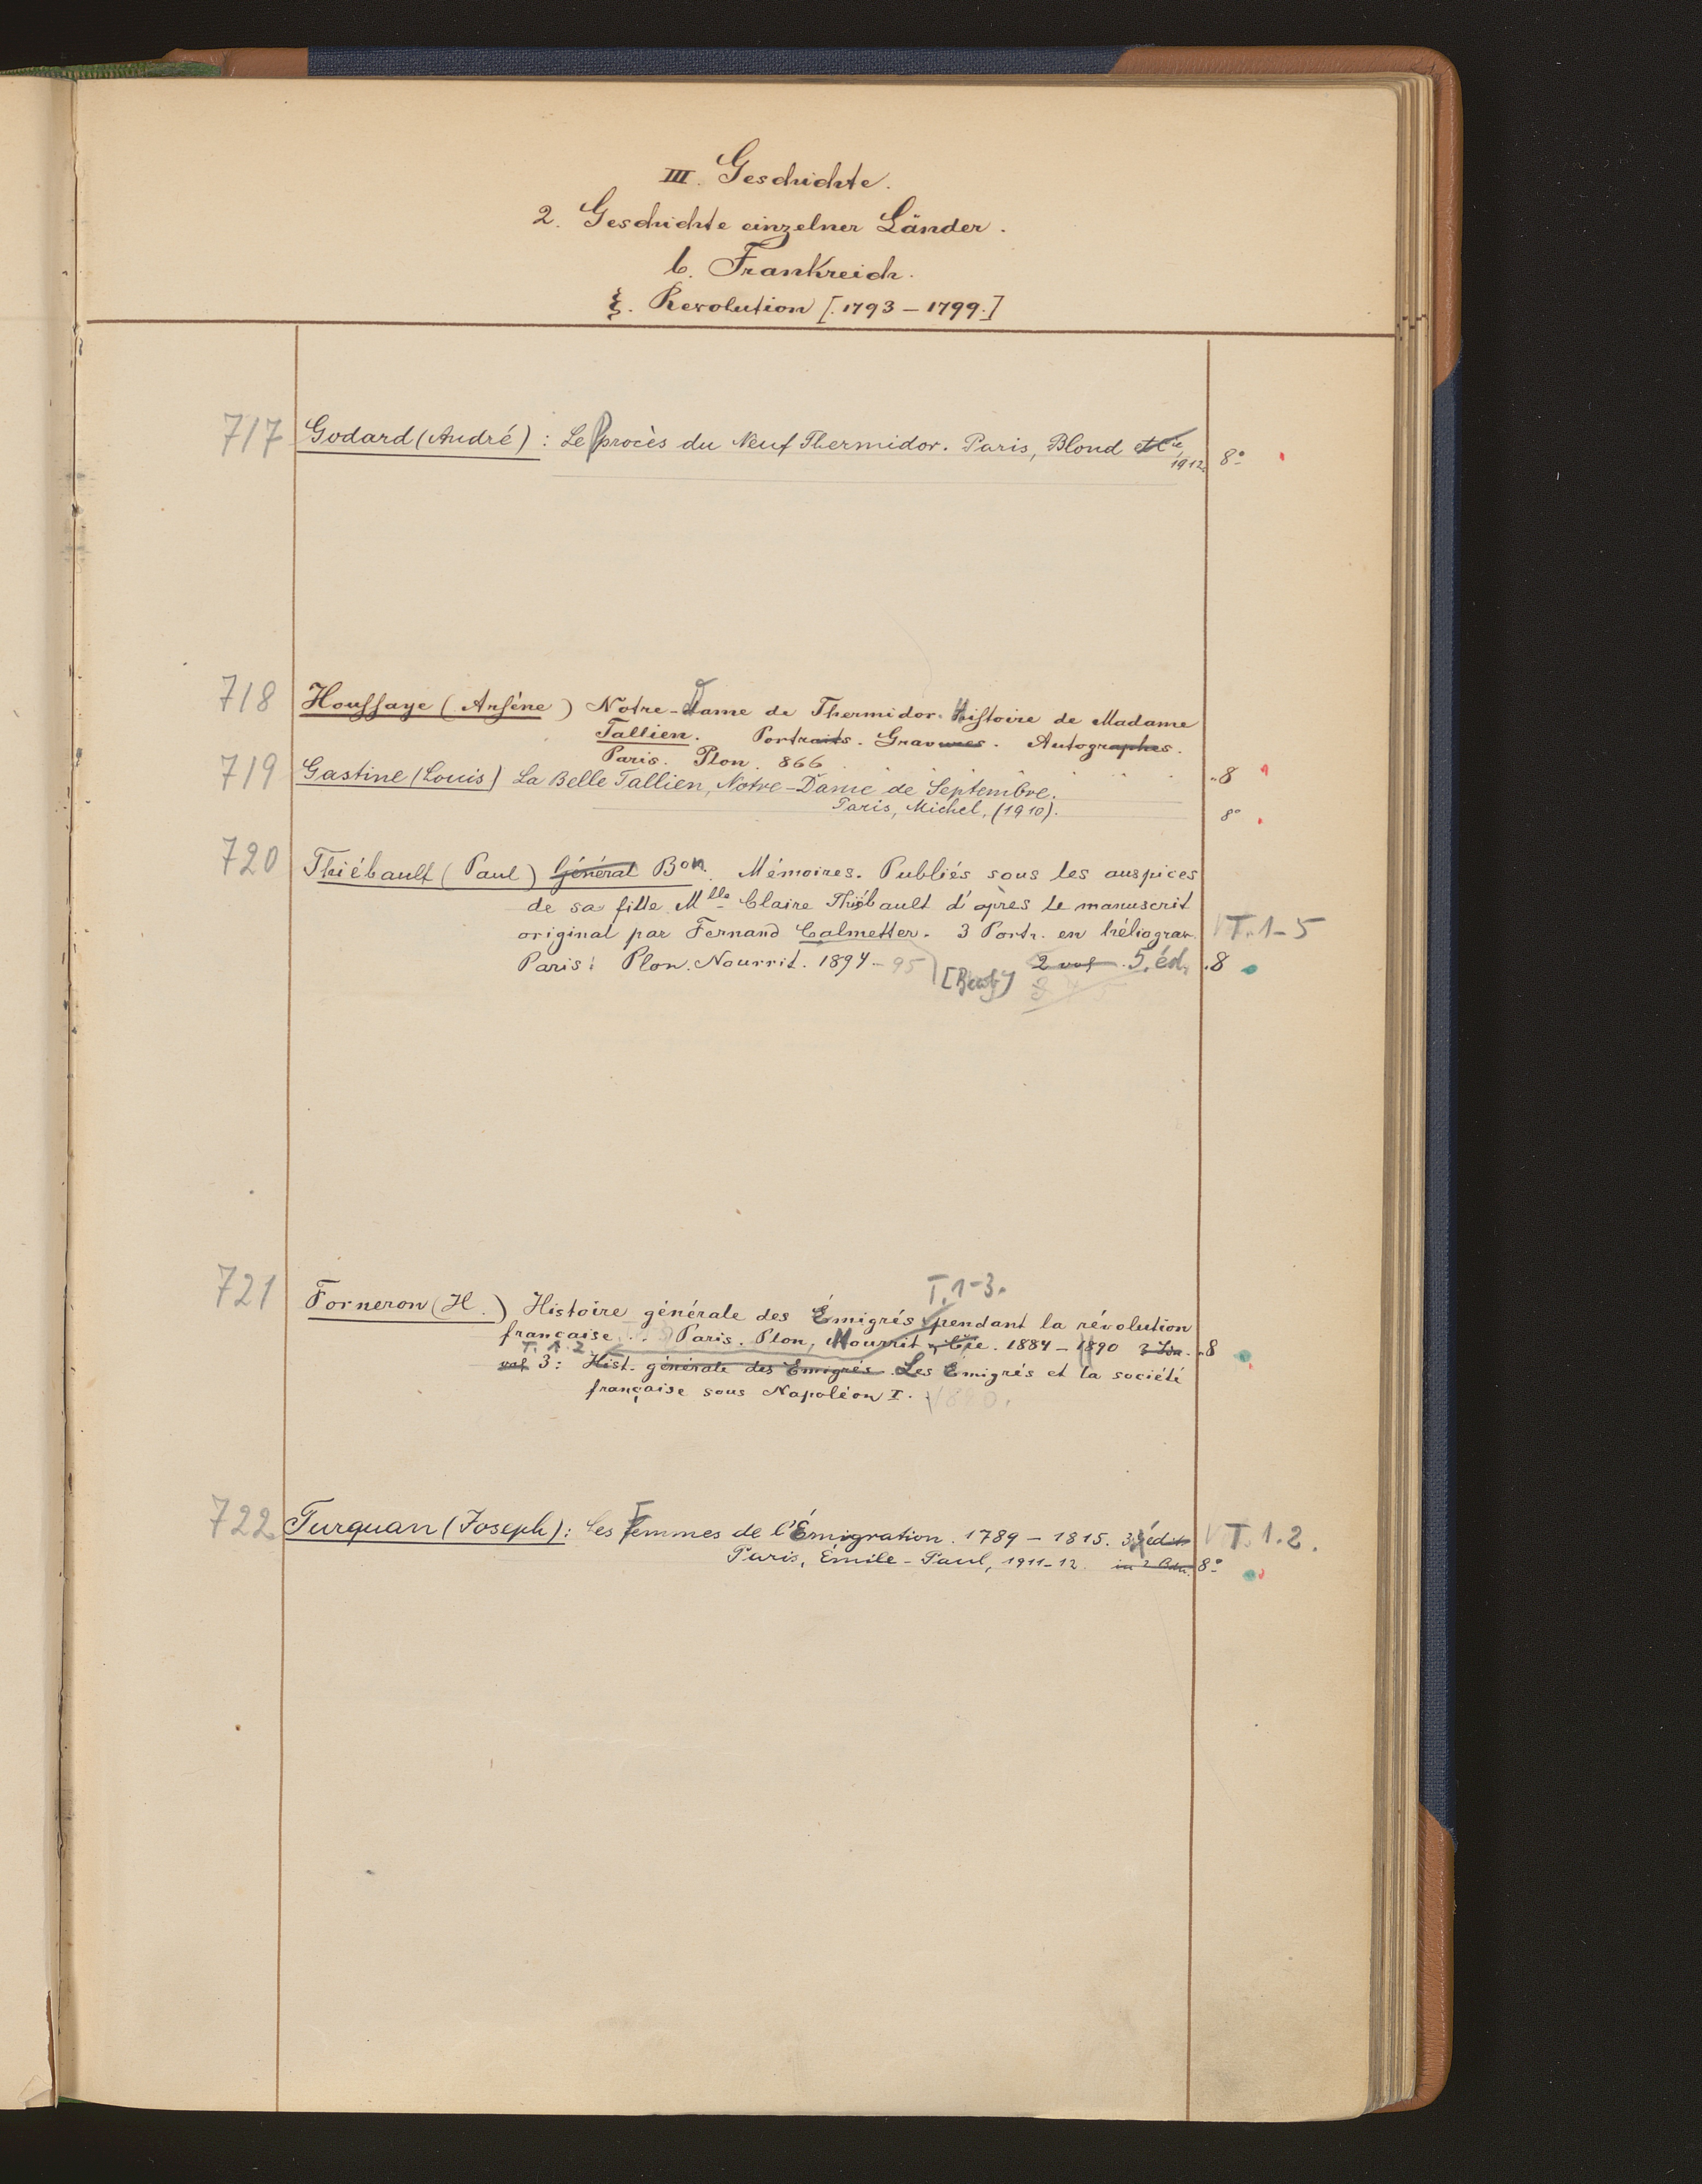 III. Geschichte.
2. Geschichte einzelner Länder.
b. Frankreich.
ξ. Revolution [1793-1799.]
717 Godard (André): Le Procès du Neuf Thermidor. Paris, Blond et Cie, 8°
1912.
718 Houssaye (Arsène) Notre-Dame de Thermidor. Histoire de Madame
Tallien. Portraits. Gravures. Autographes.
Paris. Plon. 866 . . . . . . .8
719 Gastine (Louis) La Belle Tallien, Notre-Dame de Septembre.
Paris, Michel, (1910). 8°
720 Thiébault (Paul) Général Bon. Mémoires. Publiés sous les auspices
de sa fille Mlle Claire Thiébault d'après le manuscrit
original par Fernand Calmetter. 3 Portr. en héliograv. T. 1-5
Paris: Plon. Nourrit. 1894-95 2 vol. 5. éd. .8
T. 1-3.
721 Forneron (H.) Histoire générale des Émigrés pendant la révolution
française. Paris. Plon, Nourrit, Cie. 1884-1890 .8
T. 1. 2.
vol 3: Hist. générale des Emigrés. Les Emigrés et la société
française sous Napoléon I. 1890.
722 Turquan (Joseph): Les Femmes de l'Émigration. 1789-1815. 3 édit. T. 1.2.
Paris, Émile-Paul, 1911-12. in 2 Bdn. 8°